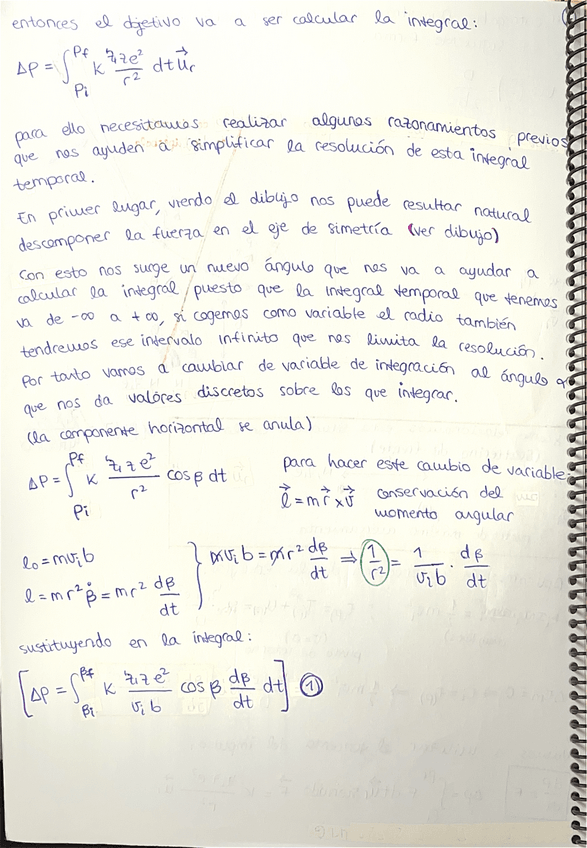 entonces el objetivo va a ser calcular la integral:
ΔP = ∫_{Pi}^{Pf} K z₁ze²/r² dt u⃗r
para ello necesitamos realizar algunos razonamientos previos
que nos ayuden a simplificar la resolución de esta integral
temporal.
En primer lugar, viendo el dibujo nos puede resultar natural
descomponer la fuerza en el eje de simetría (ver dibujo)
Con esto nos surge un nuevo ángulo que nos va a ayudar a
calcular la integral puesto que la integral temporal que tenemos
va de -∞ a +∞, si cogemos como variable el radio también
tendremos ese intervalo infinito que nos limita la resolución.
Por tanto vamos a cambiar de variable de integración al ángulo
que nos da valores discretos sobre los que integrar.
(la componente horizontal se anula)
ΔP = ∫_{Pi}^{Pf} K z₁ze²/r² cos β dt
para hacer este cambio de variable
l⃗ = m r⃗ x v⃗ conservación del
momento angular
l₀ = mvᵢb
l = mr²β̇ = mr² dβ/dt
} mvᵢb = mr² dβ/dt ⇒ 1/r² = 1/vᵢb · dβ/dt
sustituyendo en la integral:
[ΔP = ∫_{βi}^{βf} K z₁ze²/vᵢb cos β dβ/dt dt] ①